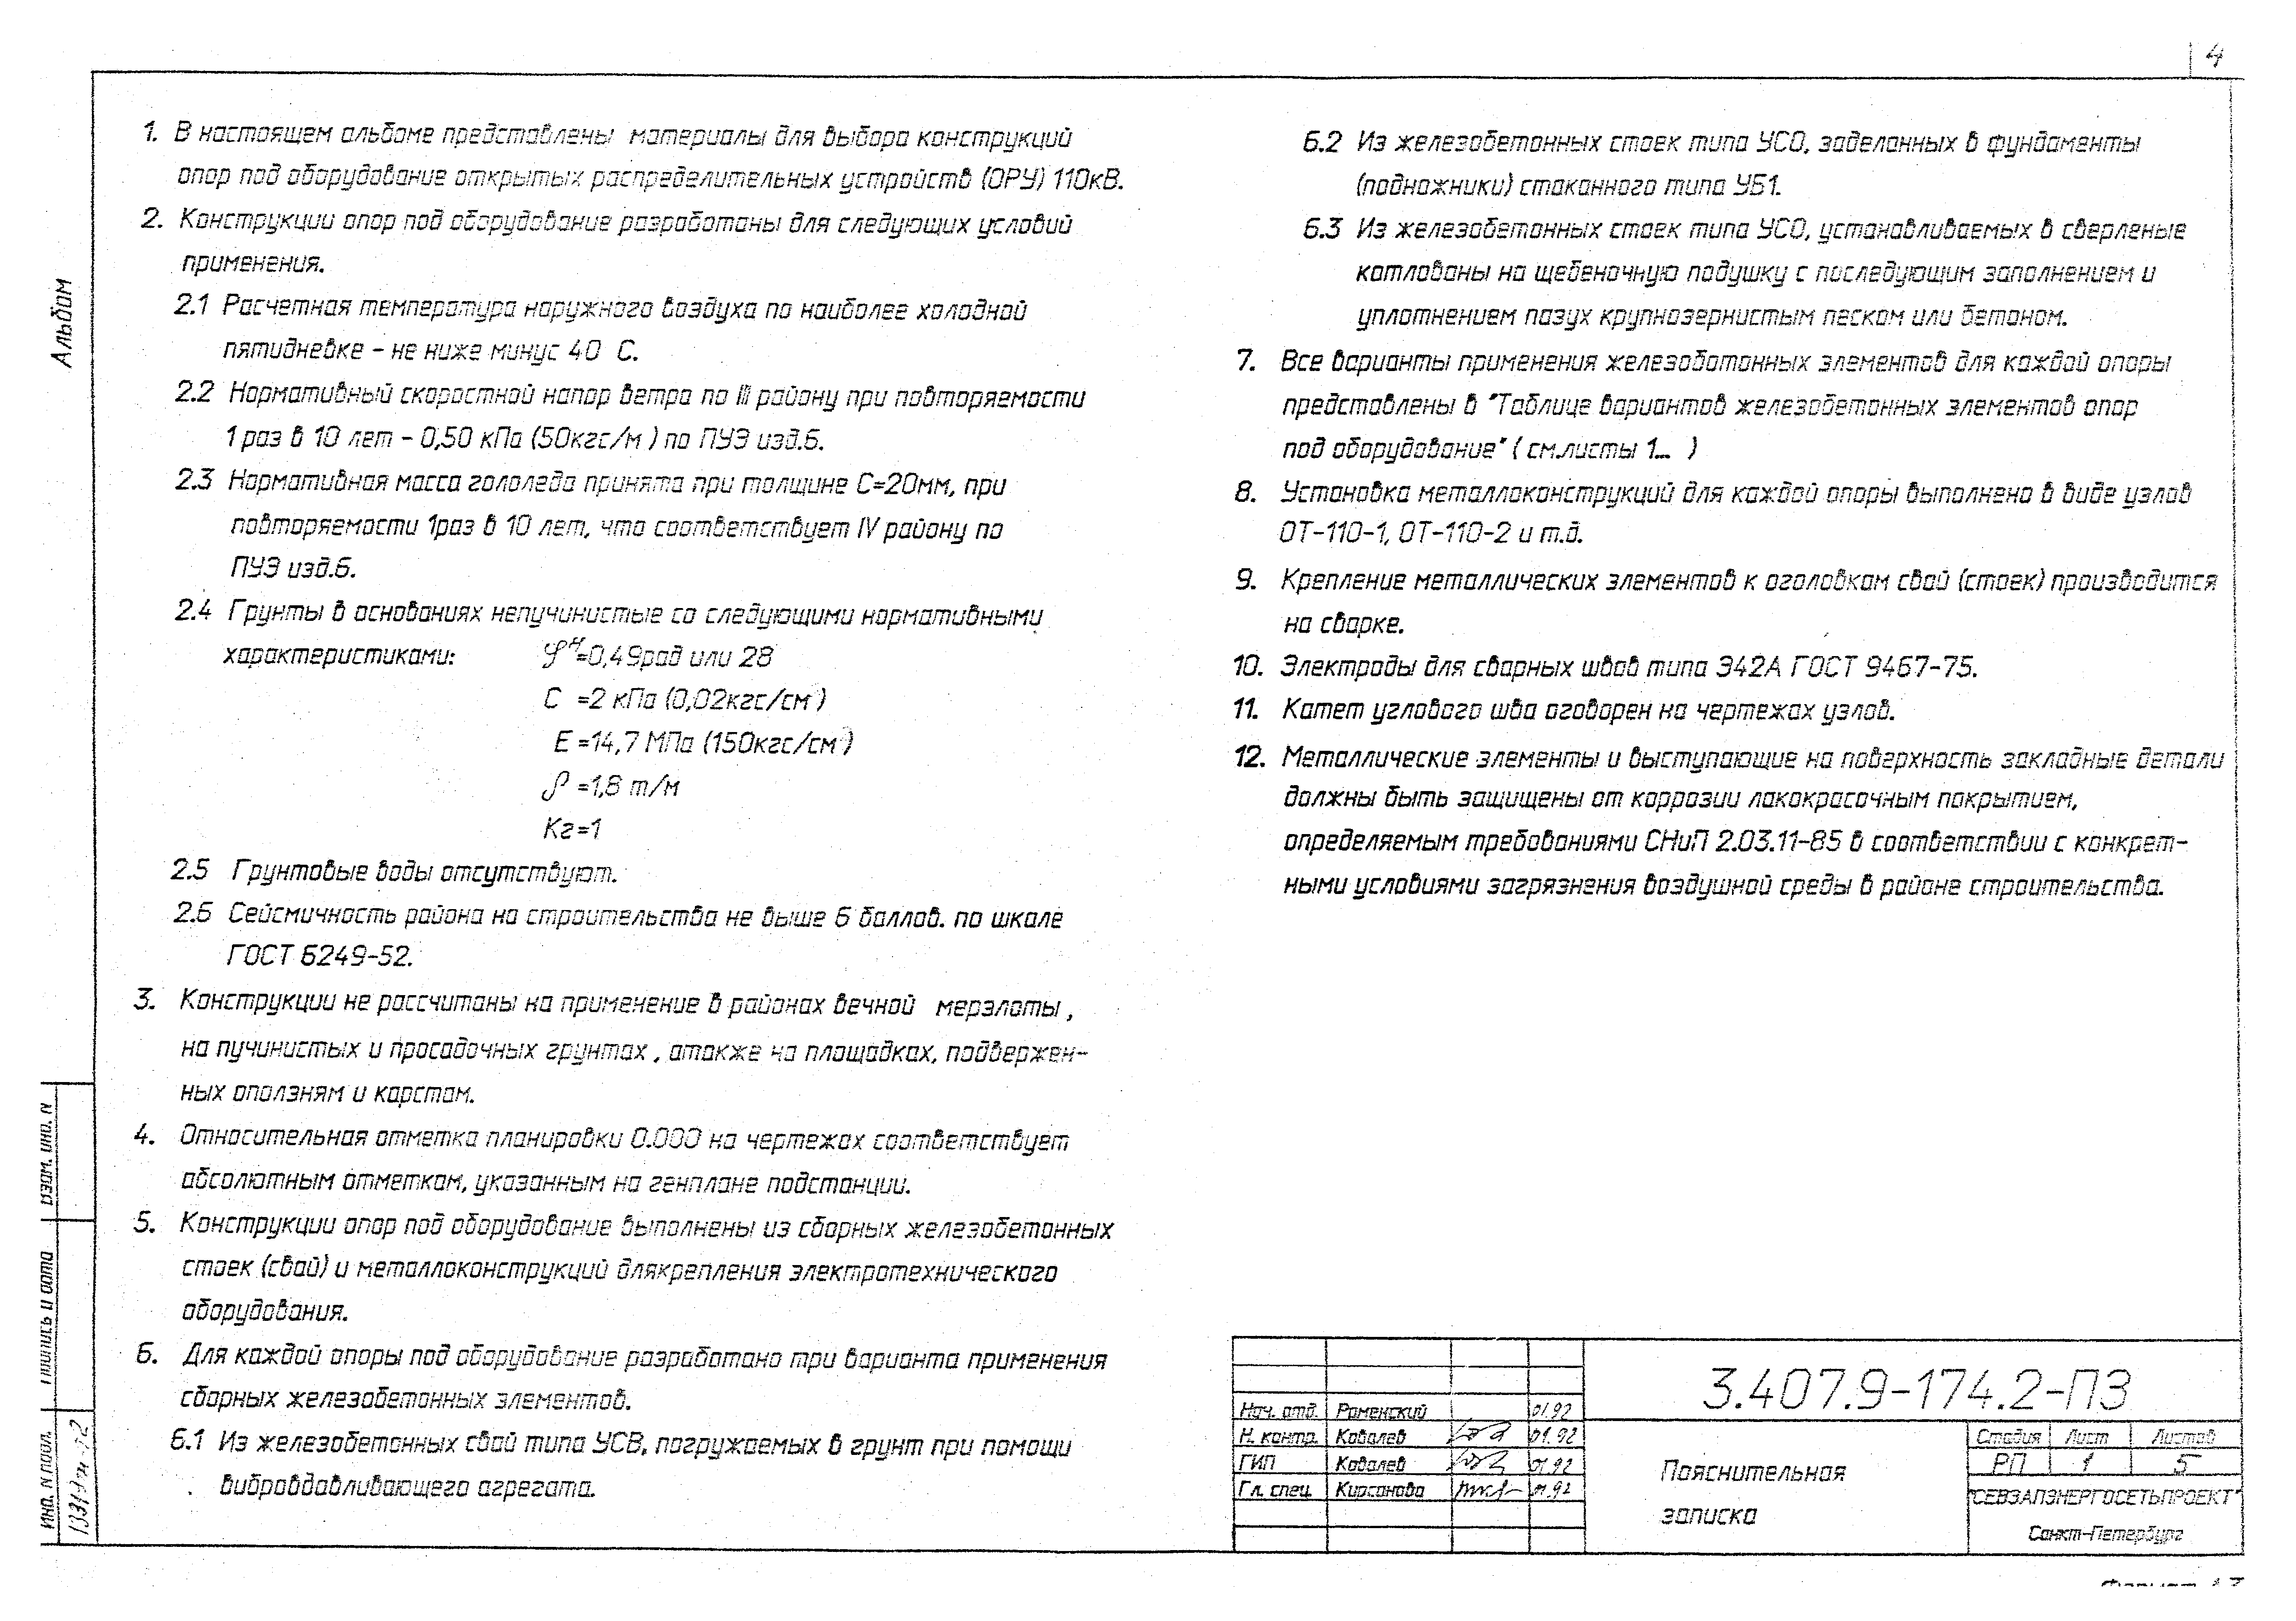 4
1. В настоящем альбоме представлены материалы для выбора конструкций
опор под оборудование открытых распределительных устройств (ОРУ) 110кВ.
2. Конструкции опор под оборудование разработаны для следующих условий
применения.
2.1 Расчетная температура наружного воздуха по наиболее холодной
пятидневке - не ниже минус 40 С.
2.2 Нормативный скоростной напор ветра по III району при повторяемости
1 раз в 10 лет - 0,50 кПа (50кгс/м ) по ПУЭ изд.6.
2.3 Нормативная масса гололеда принята при толщине С=20мм, при
повторяемости 1раз в 10 лет, что соответствует IV району по
ПУЭ изд.6.
2.4 Грунты в основаниях непучинистые со следующими нормативными
характеристиками: φн=0,49рад или 28
С =2 кПа (0,02кгс/см )
Е =14,7 МПа (150кгс/см )
ρ =1,8 т/м
Кг=1
2.5 Грунтовые воды отсутствуют.
2.6 Сейсмичность района на строительства не выше 6 баллов. по шкале
ГОСТ 6249-52.
3. Конструкции не рассчитаны на применение в районах вечной мерзлоты ,
на пучинистых и просадочных грунтах , атакже на площадках, подвержен-
ных оползням и карстам.
4. Относительная отметка планировки 0.000 на чертежах соответствует
абсолютным отметкам, указанным на генплане подстанции.
5. Конструкции опор под оборудование выполнены из сборных железобетонных
стоек (свай) и металлоконструкций длякрепления электротехнического
оборудования.
6. Для каждой опоры под оборудование разработано три варианта применения
сборных железобетонных элементов.
6.1 Из железобетонных свай типа УСВ, погружаемых в грунт при помощи
вибровдавливающего агрегата.
6.2 Из железобетонных стоек типа УСО, заделанных в фундаменты
(подножники) стаканного типа УБ1.
6.3 Из железобетонных стоек типа УСО, устанавливаемых в сверленые
котлованы на щебеночную подушку с последующим заполнением и
уплотнением пазух крупнозернистым песком или бетоном.
7. Все варианты применения железоботонных элементов для каждой опоры
представлены в "Таблице вариантов железобетонных элементов опор
под оборудование" ( см.листы 1... )
8. Установка металлоконструкций для каждой опоры выполнена в виде узлов
ОТ-110-1, ОТ-110-2 и т.д.
9. Крепление металлических элементов к оголовкам свай (стоек) производится
на сварке.
10. Электроды для сварных швов типа Э42А ГОСТ 9467-75.
11. Катет углового шва оговорен на чертежах узлов.
12. Металлические элементы и выступающие на поверхность закладные детали
должны быть защищены от коррозии лакокрасочным покрытием,
определяемым требованиями СНиП 2.03.11-85 в соответствии с конкрет-
ными условиями загрязнения воздушной среды в районе строительства.
Альбом
Взам. инв. N
Подпись и дата
Инв. N подл.
3.407.9-174.2-ПЗ
Нач. отд. Роменский 01.92
Н. контр. Ковалев 01.92
ГИП Ковалев 01.92
Гл. спец. Кирсанова 01.92
Пояснительная
записка
Стадия Лист Листов
РП 1 5
"СЕВЗАПЭНЕРГОСЕТЬПРОЕКТ"
Санкт-Петербург